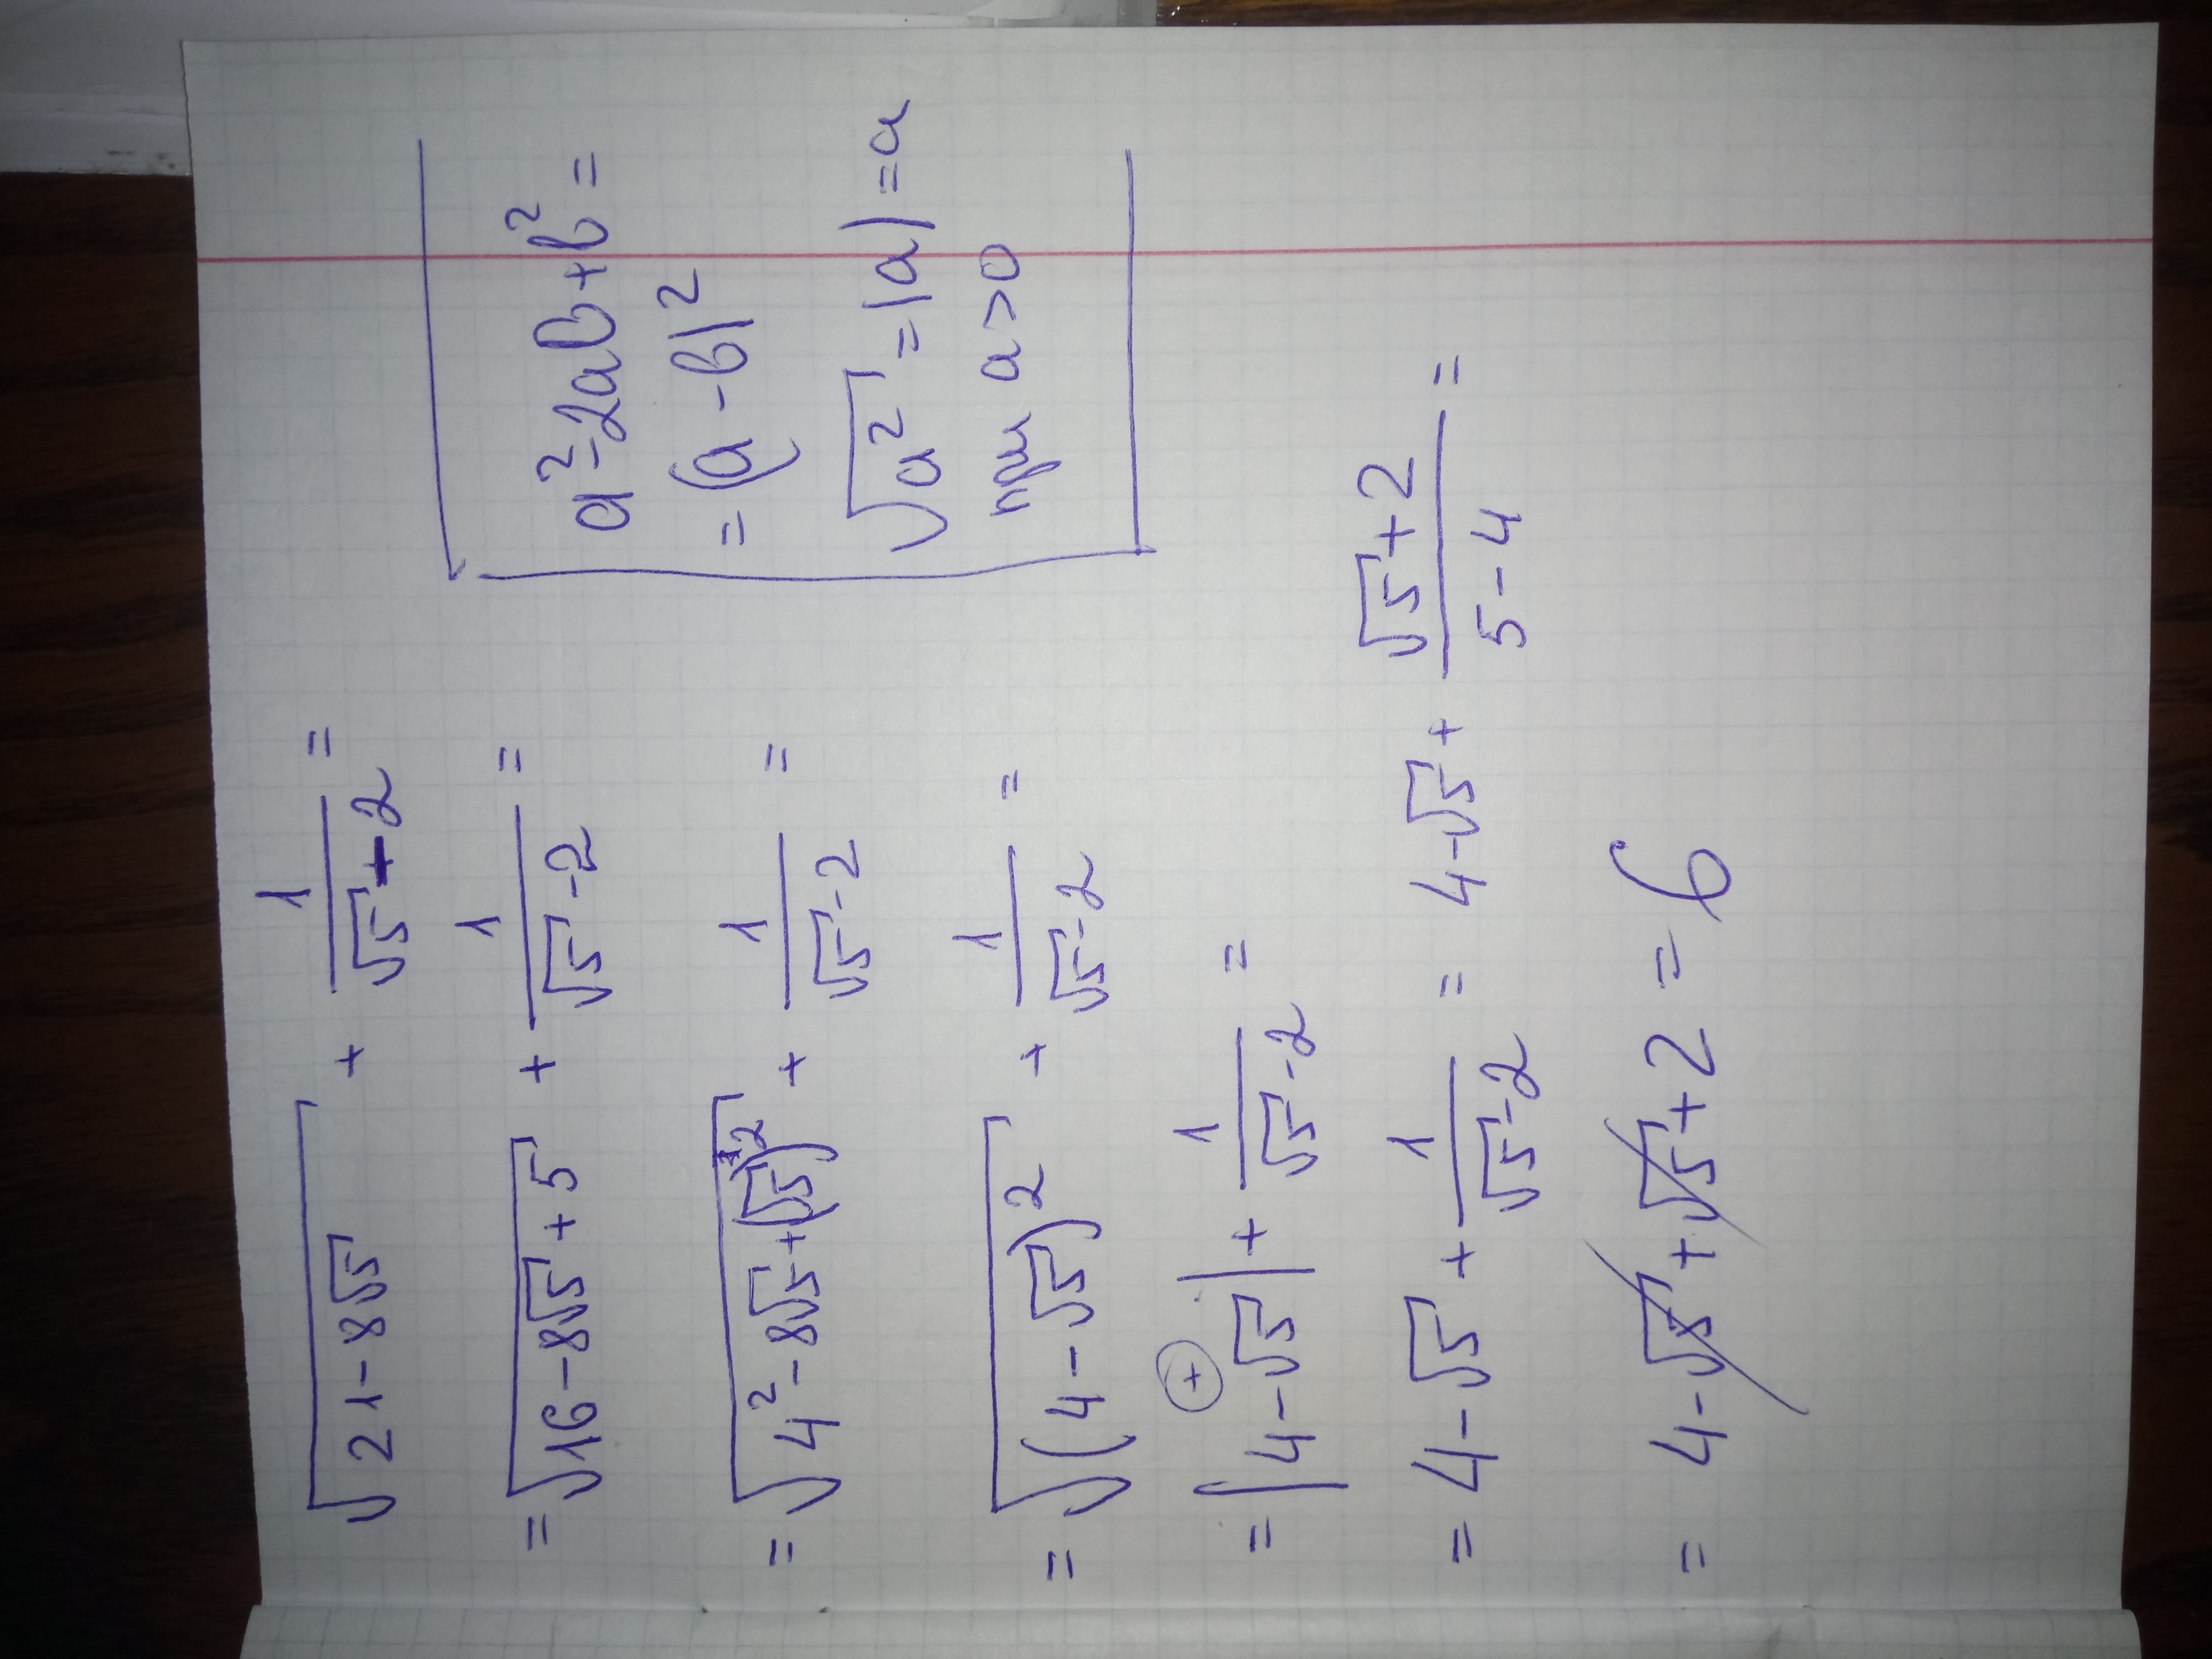 √(21-8√5) + 1/(√5-2) =
= √(16-8√5+5) + 1/(√5-2) =
= √(4²-8√5+(√5)²) + 1/(√5-2) =
= √((4-√5)²) + 1/(√5-2) =
= |4-√5| + 1/(√5-2) =
= 4-√5 + 1/(√5-2) = 4-√5 + (√5+2)/(5-4) =
= 4-√5+√5+2 = 6
a²-2ab+b² =
= (a-b)²
√a² = |a| = a
при a>0